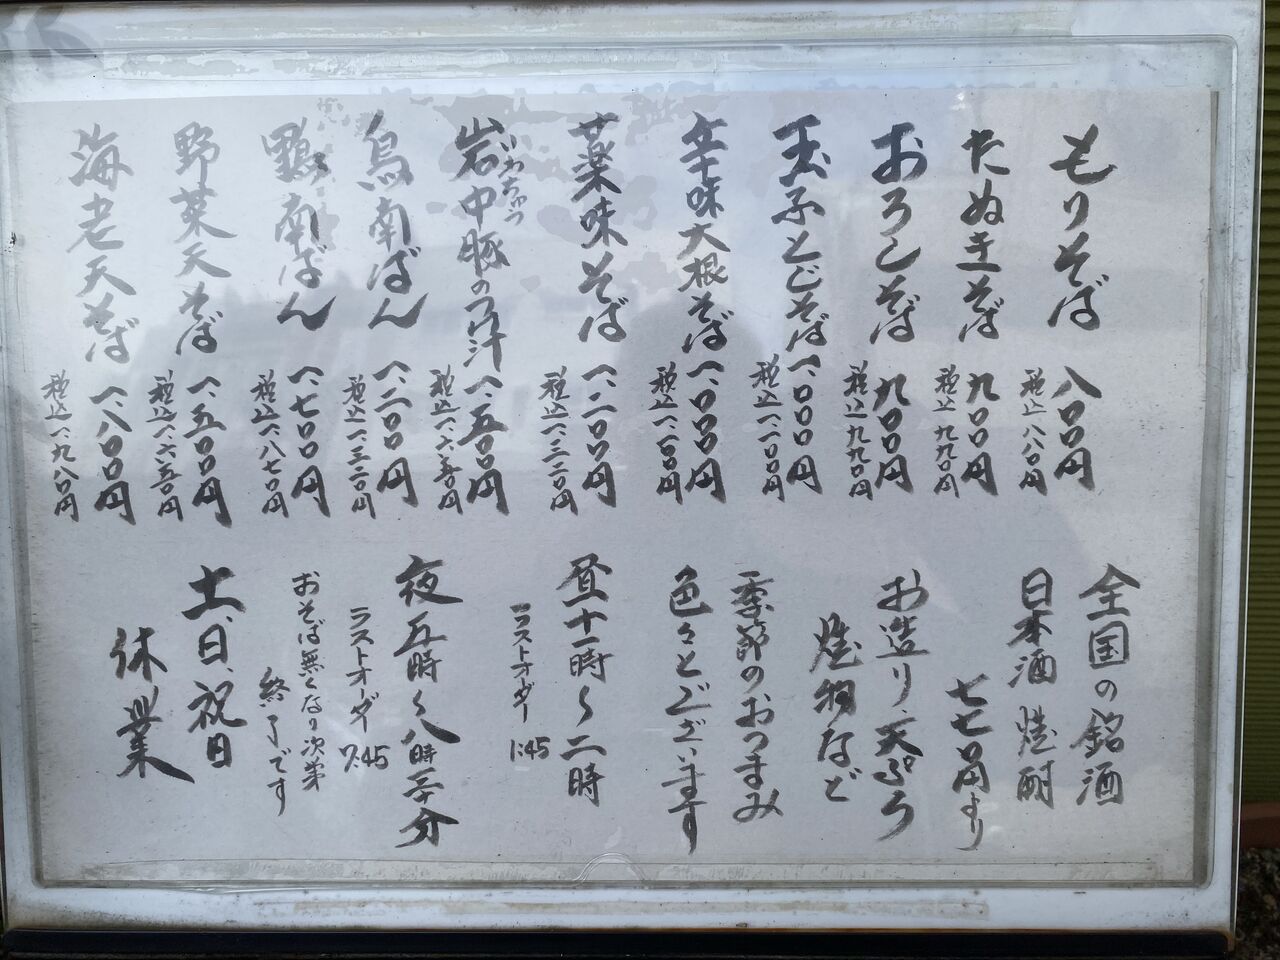 もりそば 八〇〇円
税込 八八〇円
たぬきそば 九〇〇円
税込 九九〇円
おろしそば 九〇〇円
税込 九九〇円
玉子とじそば 一、〇〇〇円
税込 一、一〇〇円
辛味大根そば 一、〇〇〇円
税込 一、一〇〇円
薬味そば 一、二〇〇円
税込 一、三二〇円
いわちゅう
岩中豚のつけ汁 一、五〇〇円
税込 一、六五〇円
鳥南ばん 一、二〇〇円
税込 一、三二〇円
鴨南ばん 一、七〇〇円
税込 一、八七〇円
野菜天そば 一、五〇〇円
税込 一、六五〇円
海老天そば 一、八〇〇円
税込 一、九八〇円
全国の銘酒
日本酒 焼酎
七七〇円より
お造り、天ぷら
焼物など
季節のおつまみ
色々とございます
昼十一時〜二時
ラストオーダー 1:45
夜五時〜八時三十分
ラストオーダー 7:45
おそば無くなり次第
終了です
土、日、祝日
休業